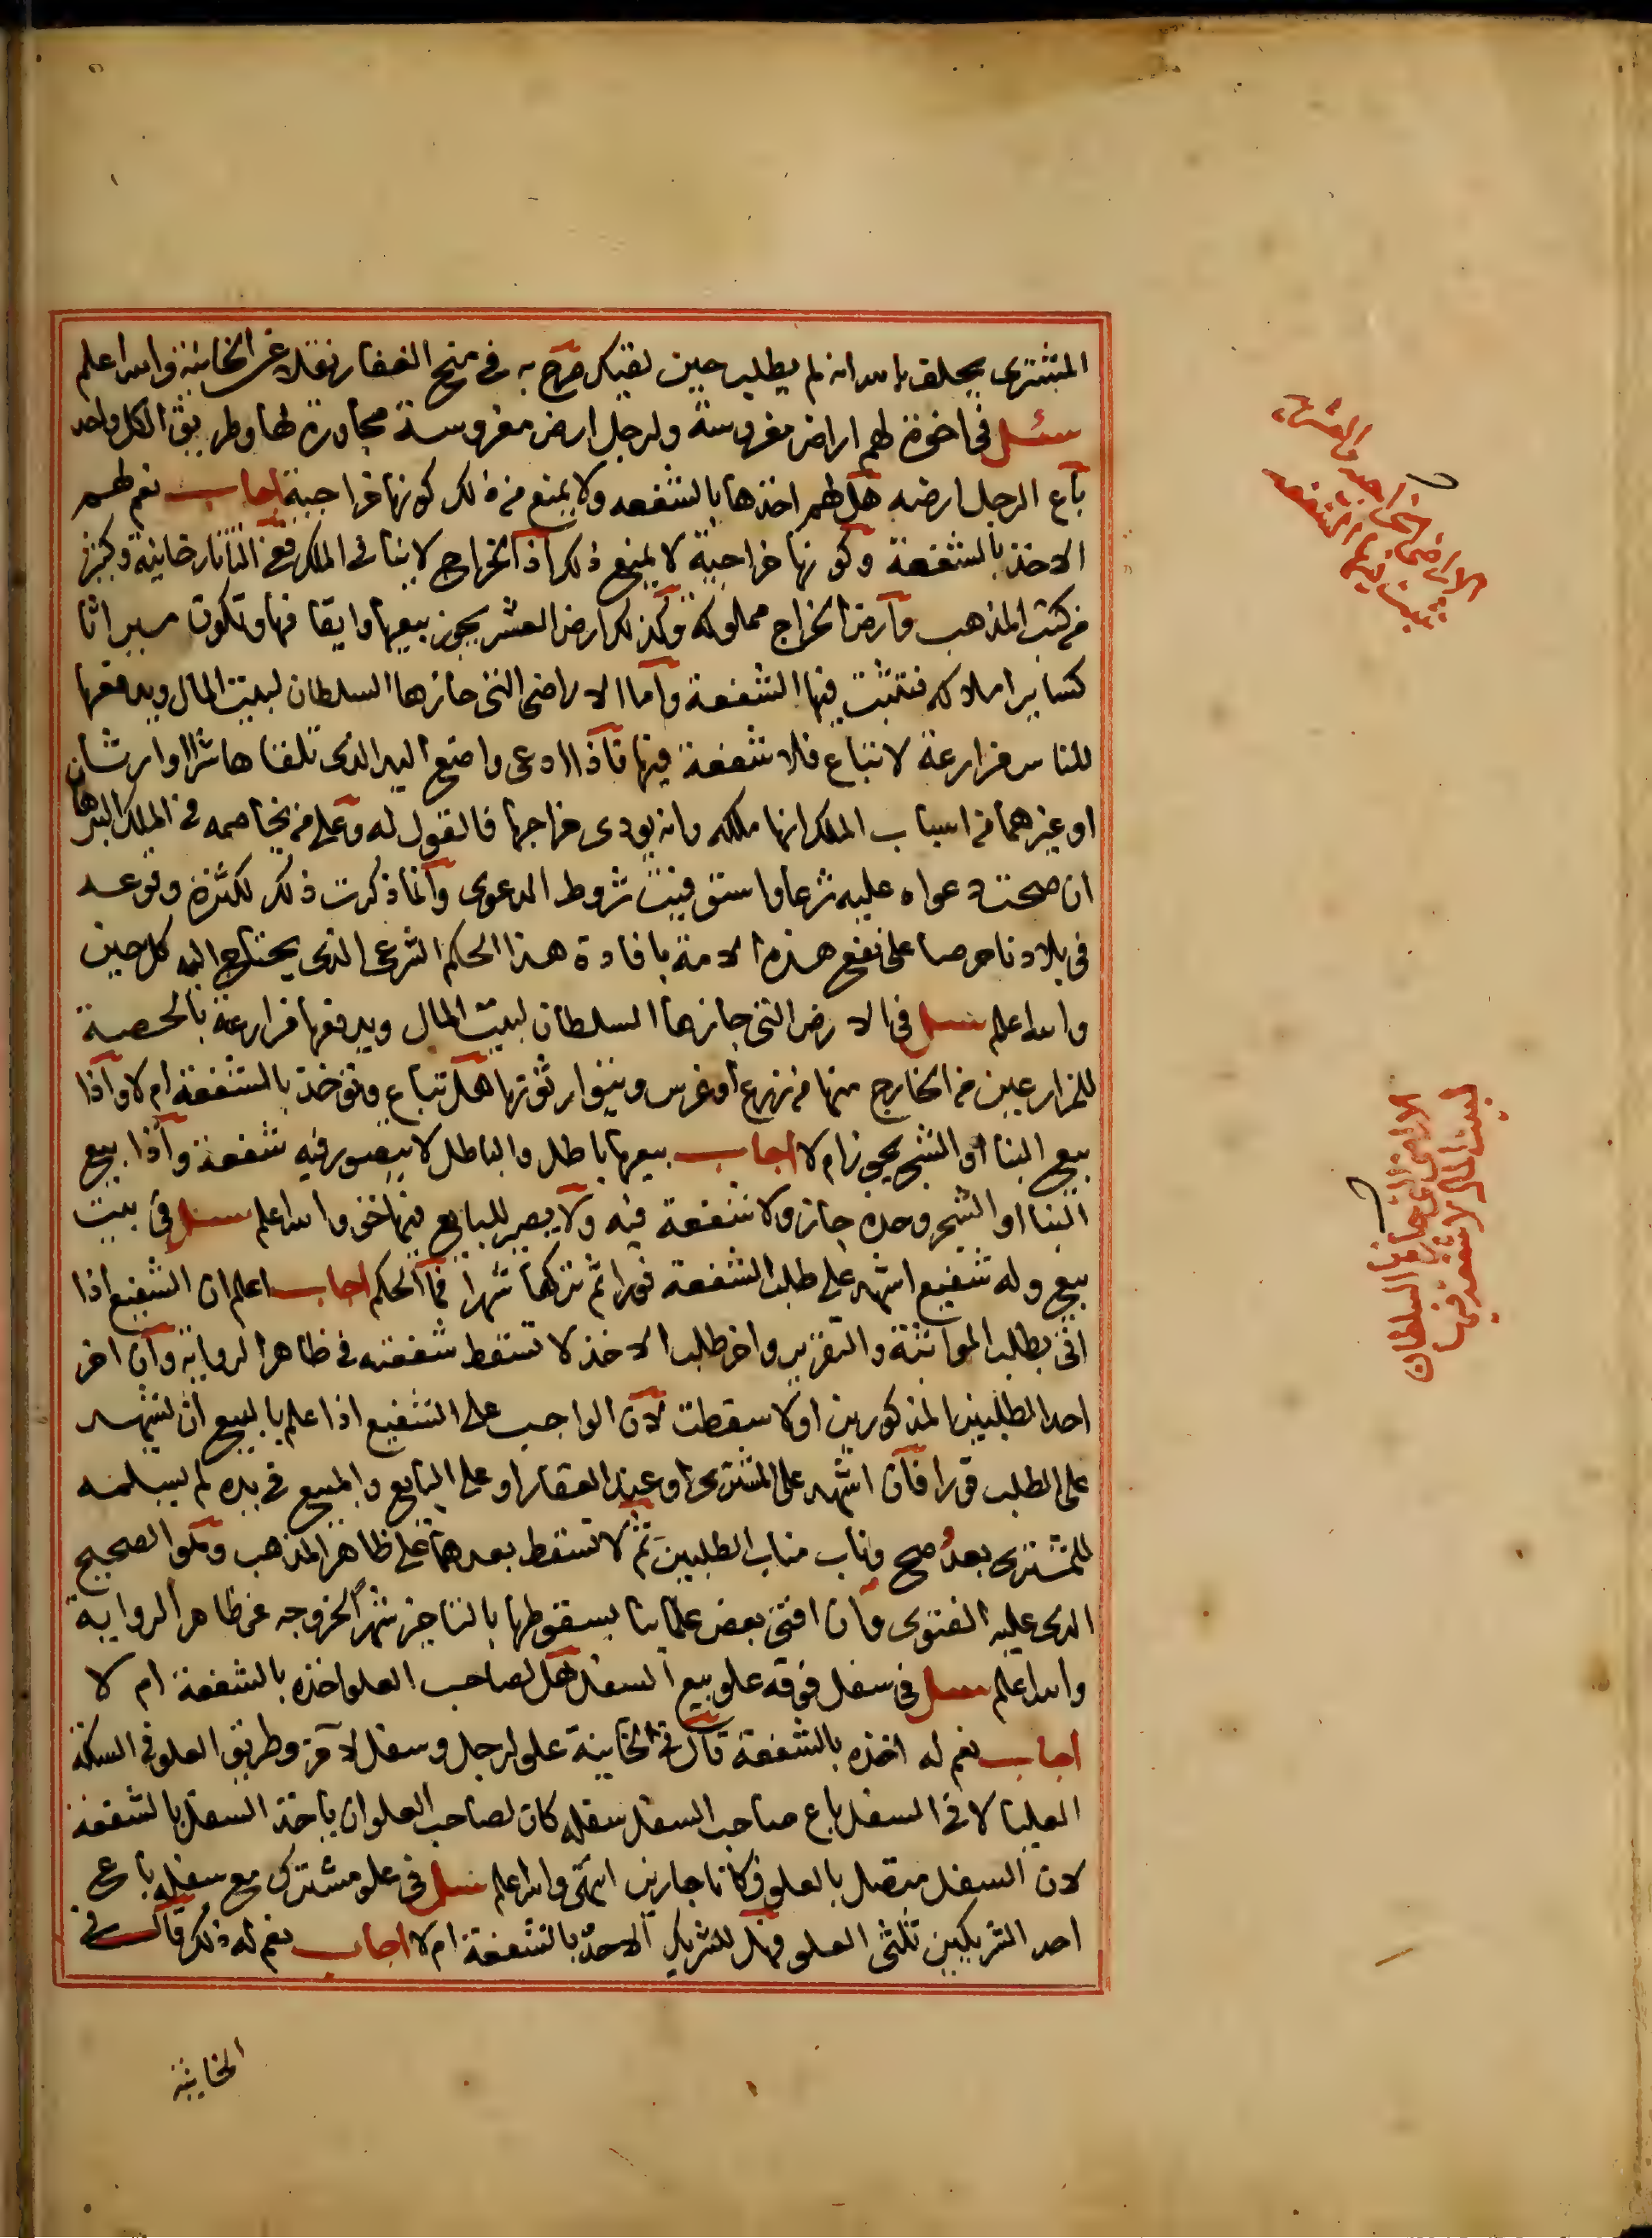 المشترى يحلف بالله انه لم يطلب حين لقيك صرح به فى منح الغفار نقلا عن الخانية والله اعلم
سئل فى اخوة لهم اراض مغروسة ولرجل ارض مغروسة مجاورة لها وطريق الكل واحد
باع الرجل ارضه هل لهم اخذها بالشفعه ولا يمنع من ذلك كونها خراجية اجاب نعم لهم
الاخذ بالشفعة وكونها خراجية لا يمنع ذلك اذ الخراج لا ينافى الملك ففى التاتارخانية وكثير
من كتب المذهب وارض الخراج مملوكة وكذلك ارض العشر يجوز بيعها وايقافها وتكون ميراثا
كسائر املاكه فتثبت فيها الشفعة واما الاراضى التى حازها السلطان لبيت المال ويدفعها
للناس مزارعة لا تباع فلا شفعة فيها فاذا ادعى واضع اليد الذى تلقاها شرا او ارثا
او غيرهما من اسباب الملك انها ملكه وانه يودى خراجها فالقول له وعلى من يخاصمه فى الملك البرهان
ان صحت دعواه عليه شرعا واستوفيت شروط الدعوى وانما ذكرت ذلك لكثرة وقوعه
فى بلادنا حرصا على نفع هذه الامة بافادة هذا الحكم الشرعى الذى يحتاج اليه كل حين
والله اعلم سئل فى الارض التى حازها السلطان لبيت المال ويدفعها مزارعة بالحصة
للمزارعين من الخارج منها من زرع او غرس ويتوارثونها هل تباع وتوخذ بالشفعة ام لا واذا
بيع البنا او الشجر يجوز ام لا اجاب بيعها باطل والباطل لا يتصور فيه شفعة واذا بيع
البنا او الشجر وحده جاز ولا شفعة فيه ولا يصير للبايع فيها حق والله اعلم سئل فى بيت
بيع وله شفيع اشهد على طلب الشفعة فورا ثم تركها شهرا فما الحكم اجاب اعلم ان الشفيع اذا
اتى بطلب المواثبة والتقرير واخر طلب الاخذ لا تسقط شفعته فى ظاهر الرواية وان اخر
احد الطلبين المذكورين اولا سقطت لان الواجب على الشفيع اذا علم بالبيع ان يشهد
على الطلب فورا فان اشهد على المشترى او عند العقار او على البايع والمبيع فى يده لم يسلمه
للمشترى بعد صح وناب مناب الطلبين ثم لا تسقط بعدهما على ظاهر المذهب وهو الصحيح
الذى عليه الفتوى وان افتى بعض علمائنا بسقوطها بالتاخير شهرا لخروجه عن ظاهر الرواية
والله اعلم سئل فى سفل فوقه علو بيع السفل هل لصاحب العلو اخذه بالشفعة ام لا
اجاب نعم له اخذه بالشفعة قال فى الخانية علو لرجل وسفل لاخر وطريق العلو فى السكة
العليا لا فى السفل باع صاحب السفل سفله كان لصاحب العلو ان ياخذ السفل بالشفعة
لان السفل متصل بالعلو فكانا جارين انتهى والله اعلم سئل فى علو مشترك مع سفله باع
احد الشريكين ثلثى العلو فهل للشريك الاخذ بالشفعة ام لا اجاب نعم له ذلك قال فى
الخانية
الاراضى الخراجيه والعشريه
تثبت فيها الشفعه
الاراضى التى حازها السلطان
لبيت المال لا شفعة فيها